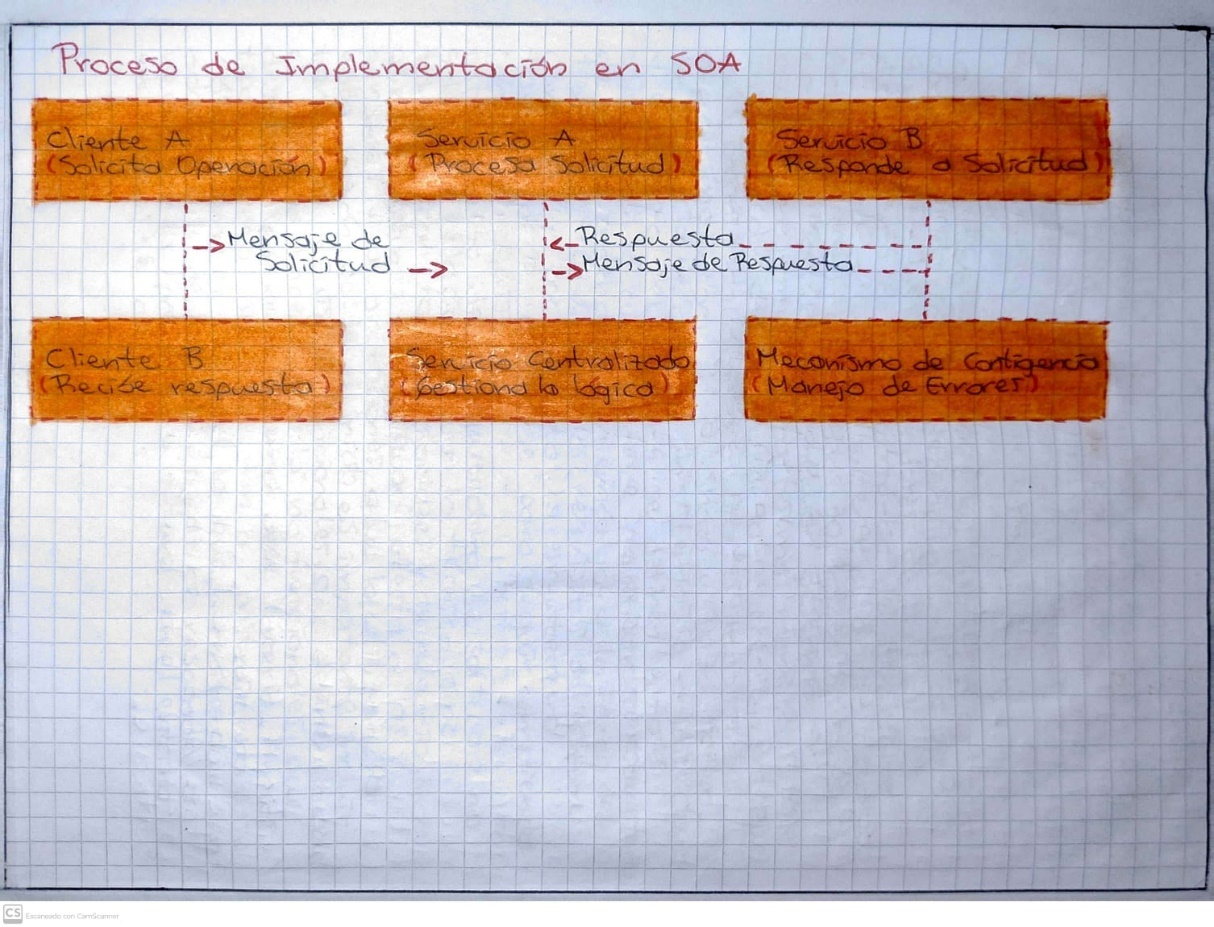 Proceso de Implementación en SOA
Cliente A
(Solicita Operación)
Servicio A
(Procesa Solicitud)
Servicio B
(Responde a Solicitud)
Mensaje de
Solicitud
Respuesta
Mensaje de Respuesta
Cliente B
(Recibe respuesta)
Servicio Centralizado
(Gestiona la lógica)
Mecanismo de Contigencia
(Manejo de Errores)
CS Escaneado con CamScanner